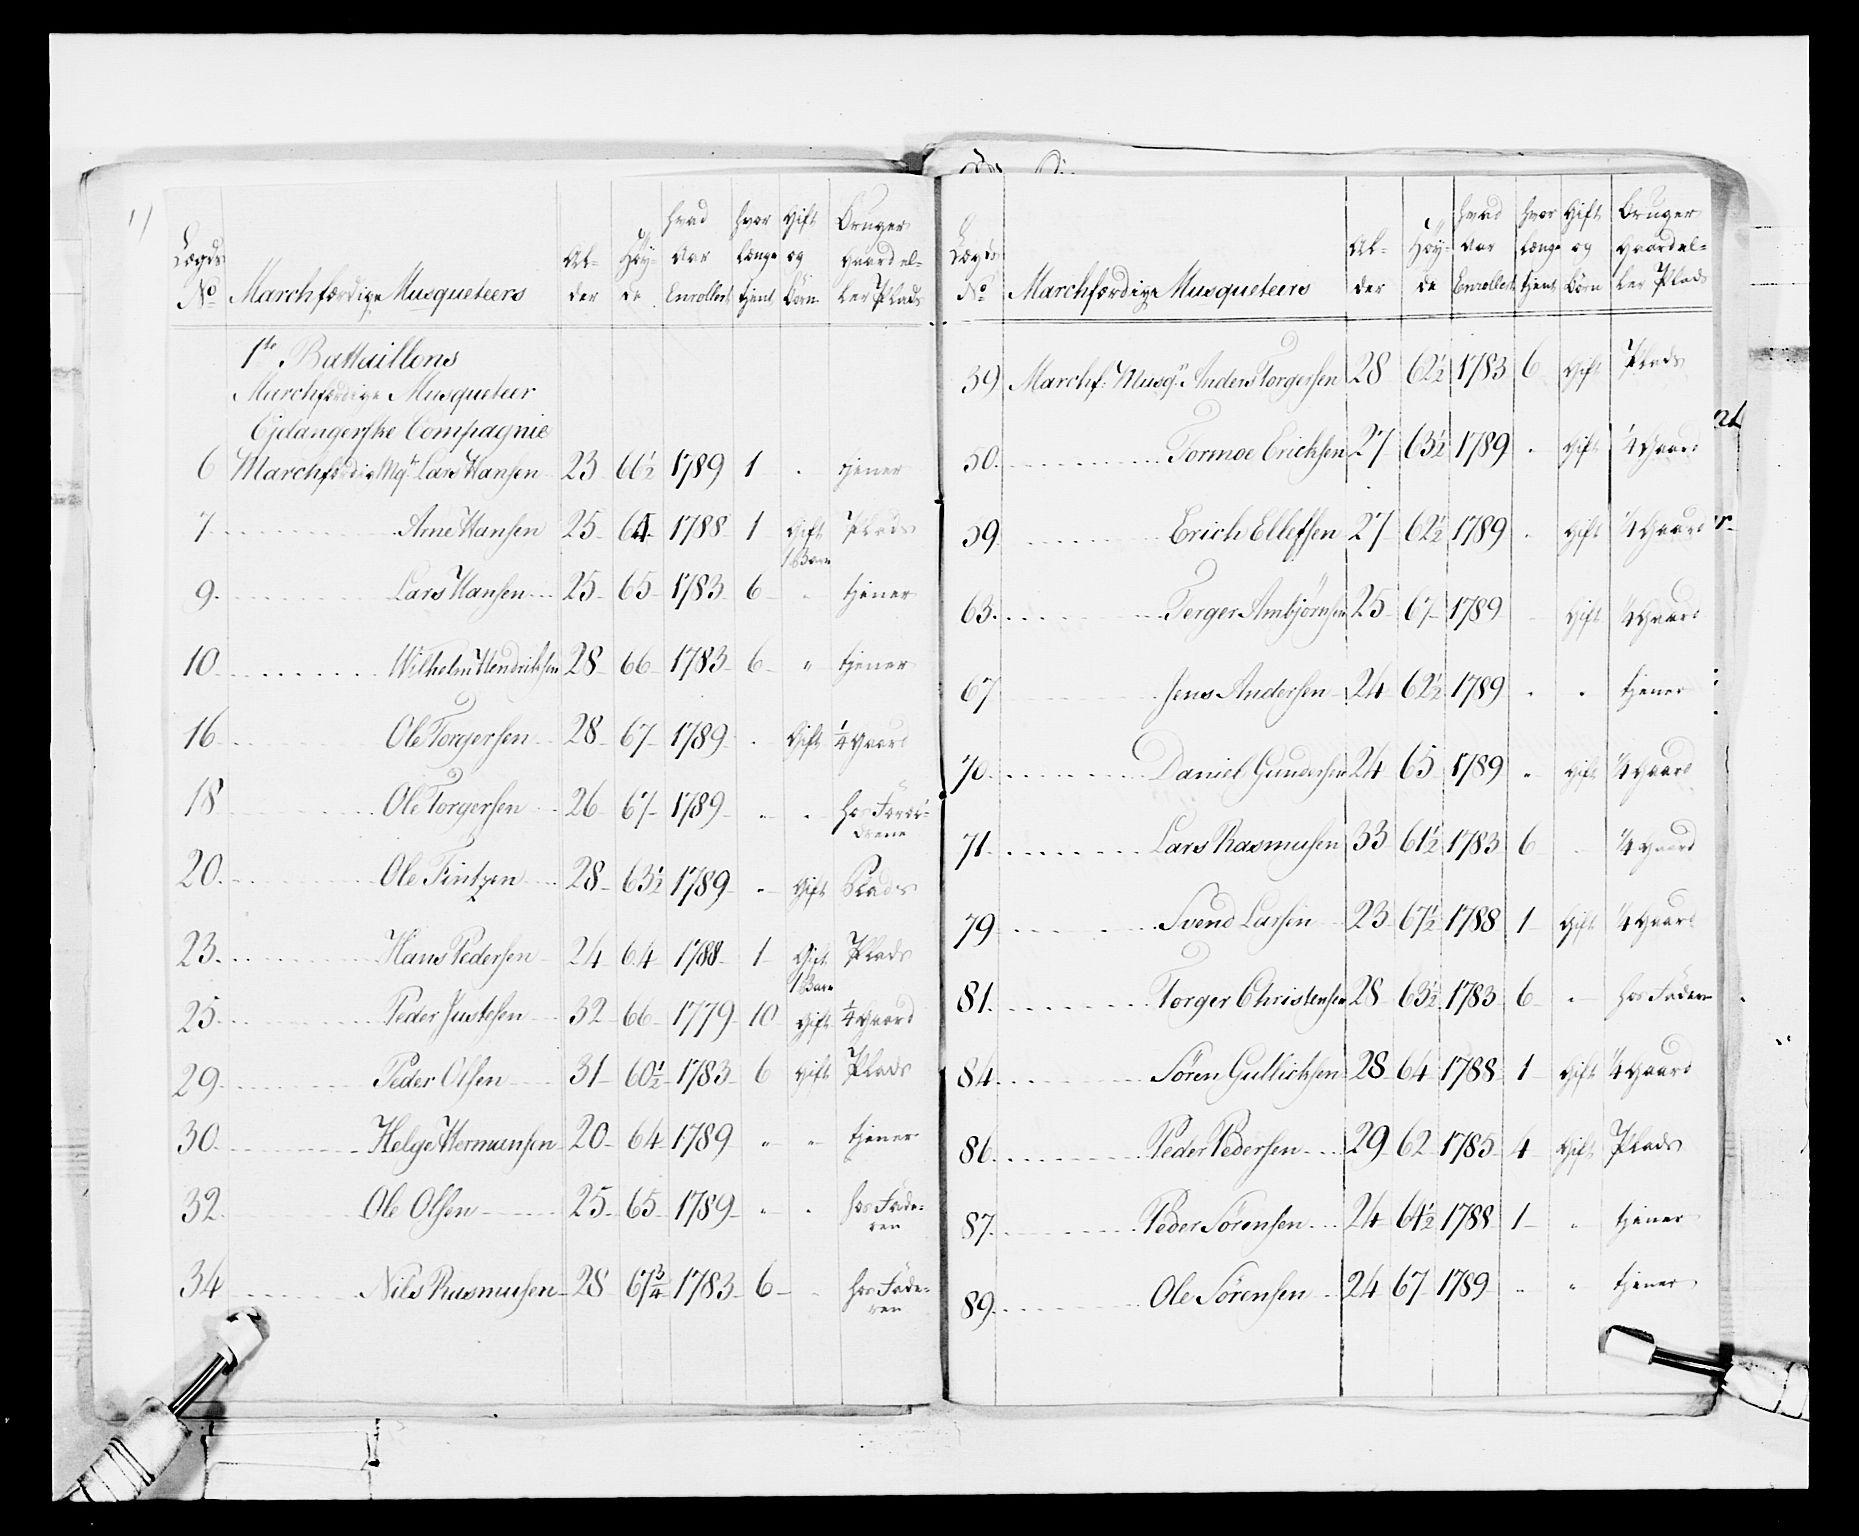 Lægds No Marchfærdige Musqueteers Al-der Höy-de hvad Aar Enrollert hvor længe tjent Gift og Börn Bruger Gaard el-ler Plads
1te Battaillons
Marchfærdige Musqueteer
Ejdangerske Compagnie
6 Marchfærdig Mqr Lars Hansen 23 66½ 1789 1 . tjener
7 Arne Hansen 25 64 1788 1 Gift 1 Barn Plads
9. Lars Hansen 25 65 1783 6 tjener
10 Wilhelm Hendriksen 28 66 1783 6 " tjener
16 Ole Torgersen 28 67 1789 . Gift ¼ Gaard
18 Ole Torgersen 26 67 1789 . . hos Foræl-drene
20. Ole Tintzen 28 63½ 1789 . Gift Plads
23. Hans Pedersen 24 64 1788 1 Gift 1 Barn Plads
25 Peder Justesen 32 66 1779 10 Gift ¼ Gaard
29 Peder Olsen 31 60½ 1783 6 Gift Plads
30. Helge Hermansen 20 64 1789 " " tjener
32. Ole Olsen 25 65 1789 . . hos Fade-ren
34 Nils Rasmusen 28 67¾ 1783 6 . hos Fade-ren
Lægds No Marchfærdige Musqueteers Al-der Höy-de hvad Aar Enrollert hvor længe tjent Gift og Börn Bruger Gaard el-ler Plads
39 Marchf: Musqr Anders Torgersen 28 62½ 1783 6 Gift Plads
50. Tormoe Ericksen 27 63½ 1789 . Gift ¼ Gaard
59 Erich Ellefsen 27 62½ 1789 . Gift ¼ Gaard
63. Terger Ambjörnsen 25 67 1789 Gift ¼ Gaard
67 Jens Andersen 24 62½ 1789 . . tjener
70. Daniel Gundersen 24 65 1789 " Gift ¼ Gaard
71 Lars Rasmusen 33 61½ 1783 6 ¼ Gaard
79 Svend Larsen 23 67½ 1788 1 Gift ¼ Gaard
81. Torger Christensen 28 63½ 1783 6 " hos Faderen
84. Sören Gullichsen 28 64 1788 1 Gift ¼ Gaard
86. Peder Pedersen 29 62 1785 4 Gift Plads
87. Peder Sörensen 24 64½ 1788 1 " tjener
89. Ole Sörensen 24 67 1789 " " tjener